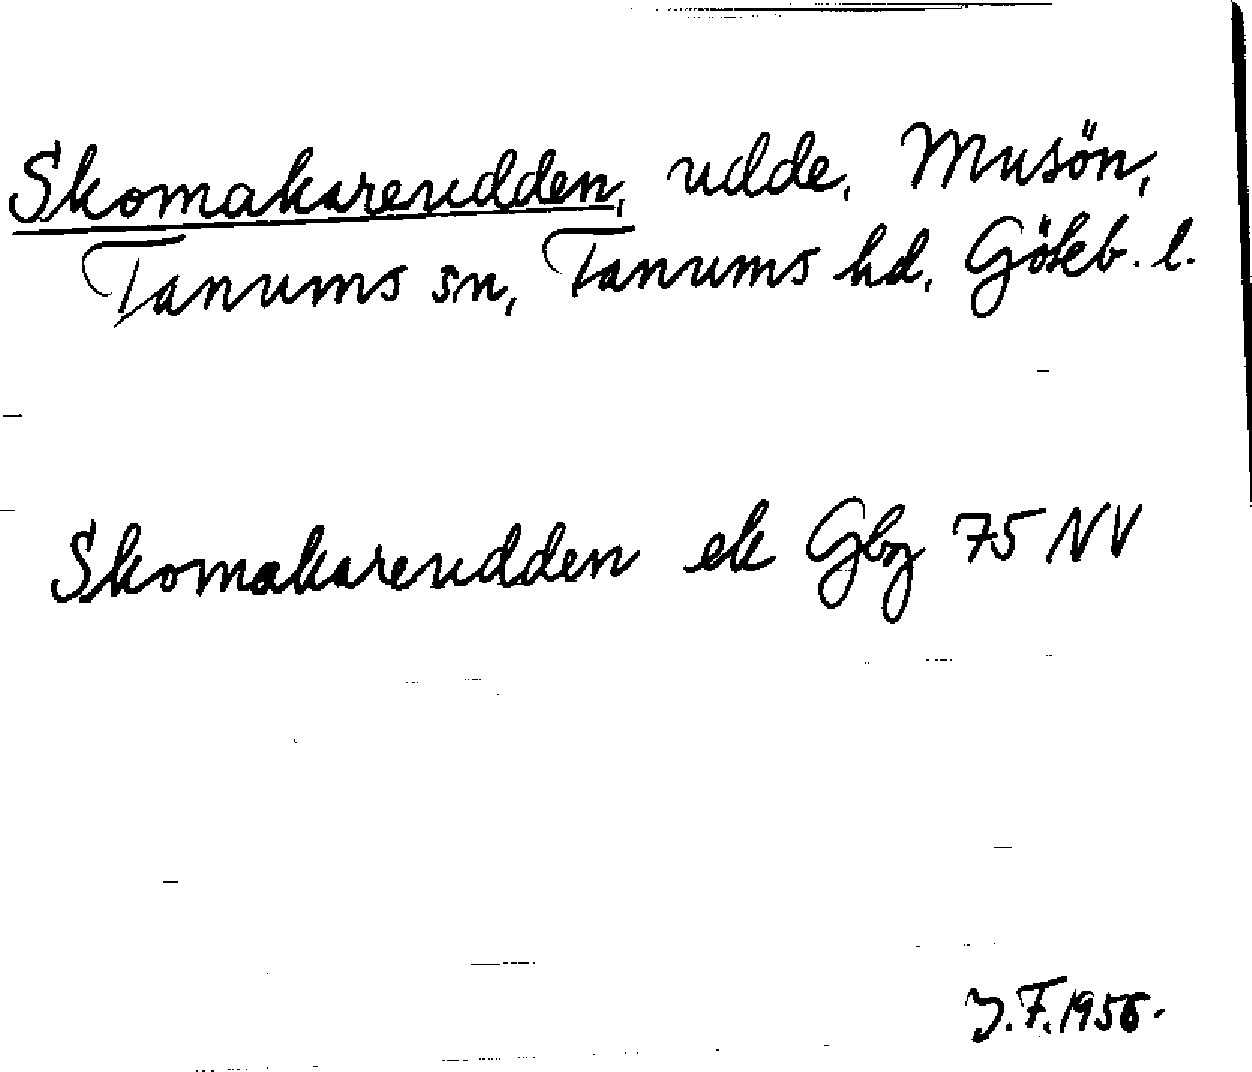 Skomakareudden, udde, Musön,
Tanums sn, Tanums hd, Göteb. l.
Skomakareudden ek Gbg 75 NV
J.F. 1956.